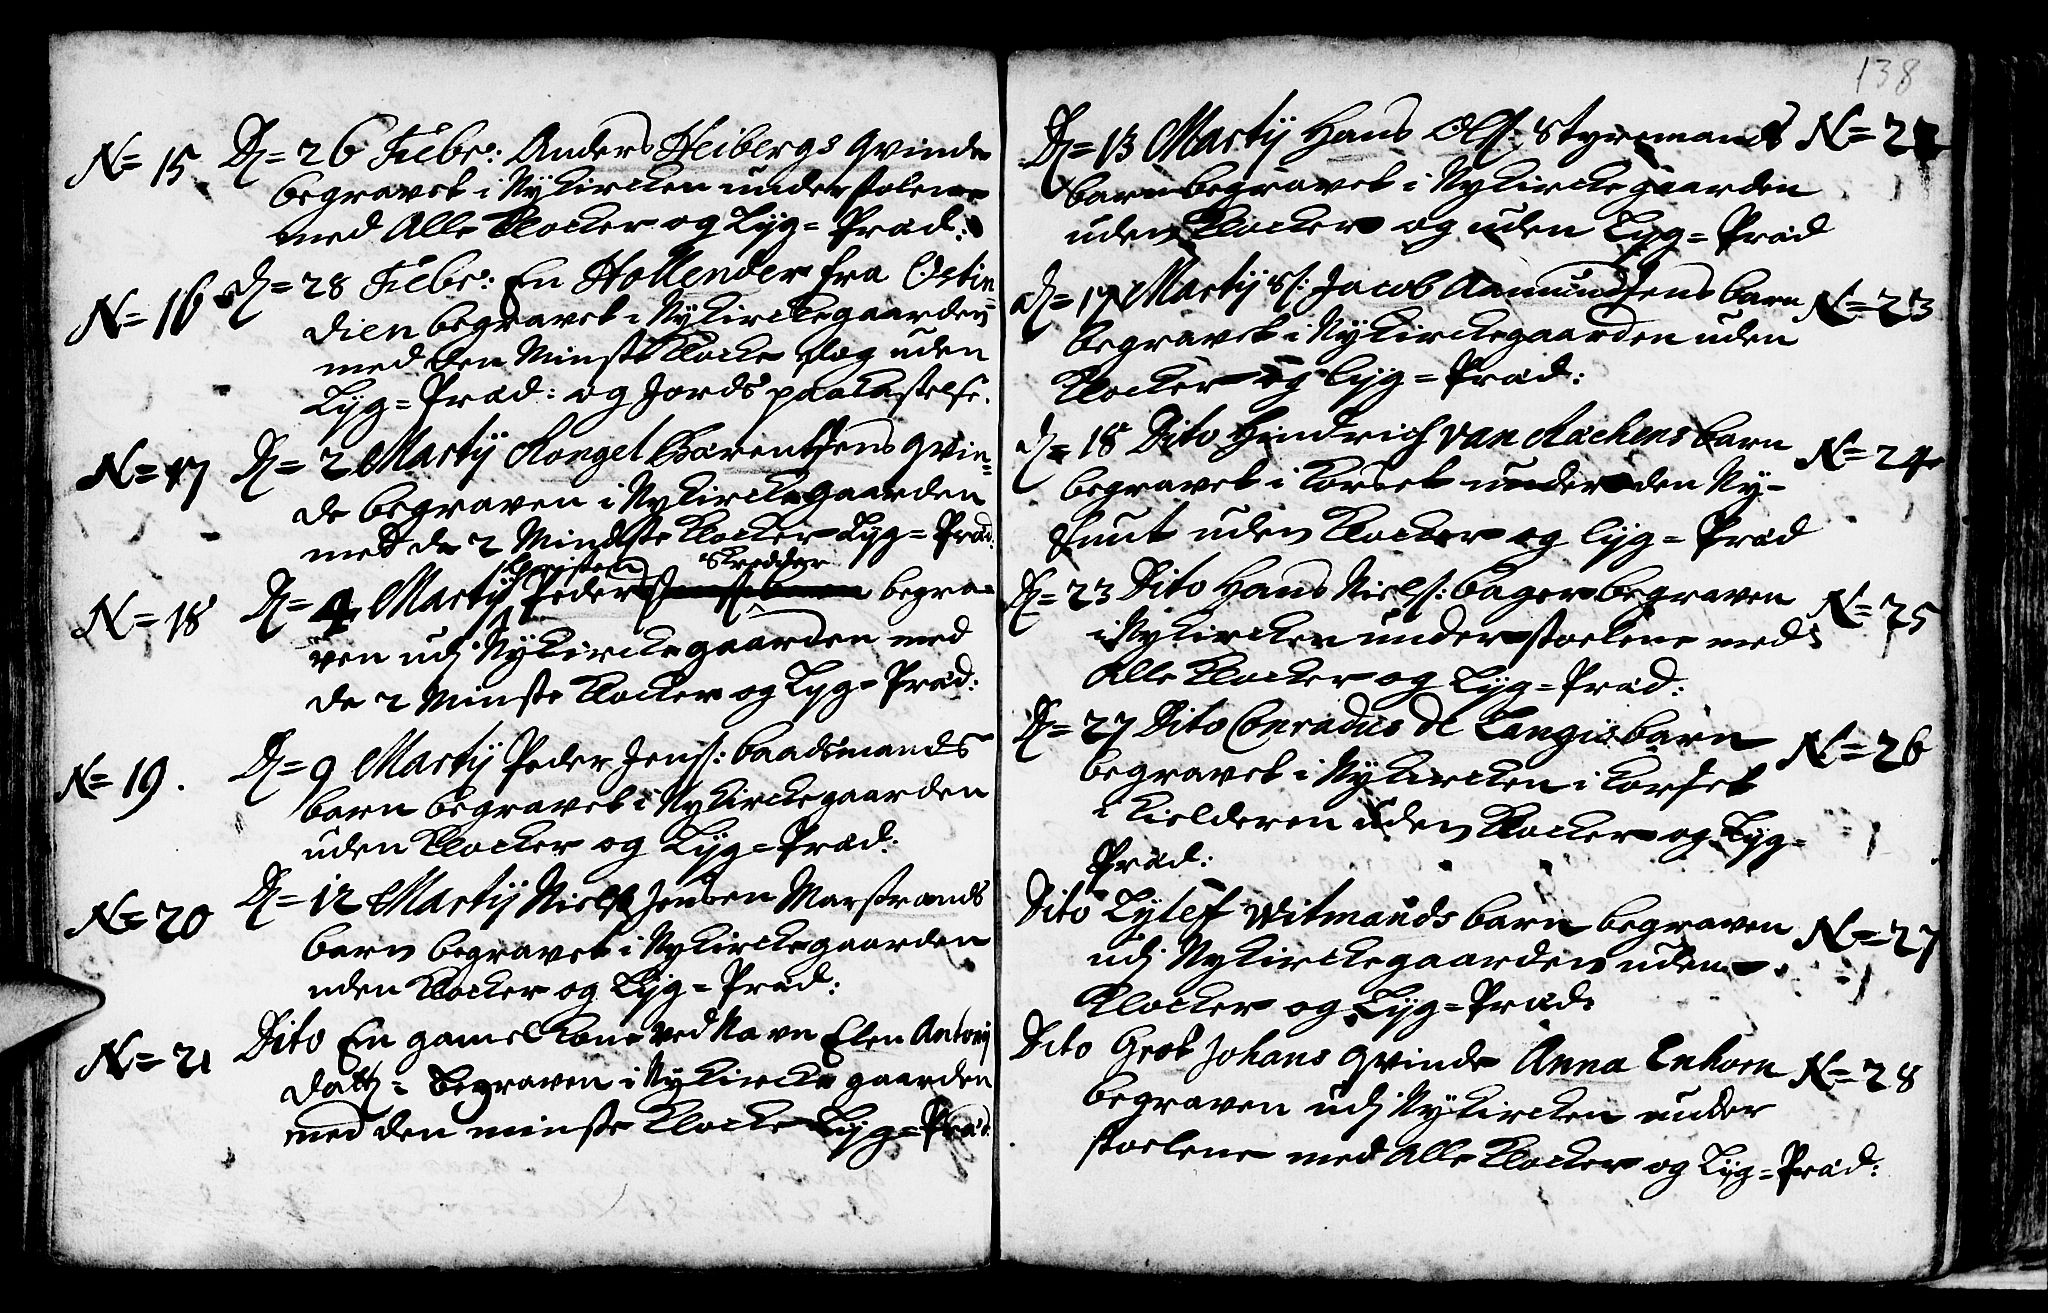 N= 15 D= 26 Febr: Anders Heibergs qvinde
begravet i Nykircken under stolene
med Alle Klocker og Lyg= Præd:
N= 16 D= 28 Febr: En Hollender fra Ostin=
dien begravet i Nykirckegaarden
med den Minste Klocke dog uden
Lyg= Præd: og Jords paakastelse.
N= 17 D= 2 Martij Rongel Barentsens qvin=
de begraven i Nykirckegaarden
med de 2 Mindste Klocker Lyg= Præd:
Christen Skredder
N= 18 D= 4 Martij Peders begra=
ven udj Nykirckegaarden med
de 2 Minste Klocker og Lyg= Præd:
N= 19. D= 9 Martij Peder Jens: baadsmands
barn begravet i Nykirckegaarden
uden Klocker og Lyg= Præd:
N= 20 D= 12 Martij Niels Jensen Marstrands
barn begravet i Nykirckegaarden
uden Klocker og Lyg= Præd:
N= 21 Dito En gamel kone ved Navn Elen Antonij
datt= begraven i Nykircke gaarden
med den minste Klocke Lyg= Præd:
138
D= 13 Martij Hans Ols: Styremands N= 22
barn begravet i Nykirckegaarden
uden Klocker og uden Lyg= Præd
D= 17 Martij Sl: Jacob Aamundsens barn N= 23
begravet i Nykirckegaarden uden
Klocker og lyg= Præd:
D= 18 Dito Hindrich van Aachens barn N= 24
begravet i Korset under den Ny=
uden Klocker og lyg= Præd
D= 23 Dito Hans Niels: bager begraven N= 25
i Nykircken under stoelene med
Alle Klocker og Lyg= Præd:
D= 27 Dito Conradus de Langis barn N= 26
begravet i Nykircken i Korset
i Kielderen uden Klocker og Lyg=
Præd:
Dito Lyleff Witmands barn begraven N= 27
udj Nykirckegaarden uden
Klocker og Lyg= Præd:
Dito Grot Johans qvinde Anna Enhorn N= 28
begraven udj Nykircken under
stoelene med Alle Klocker og Lyg= Præd: